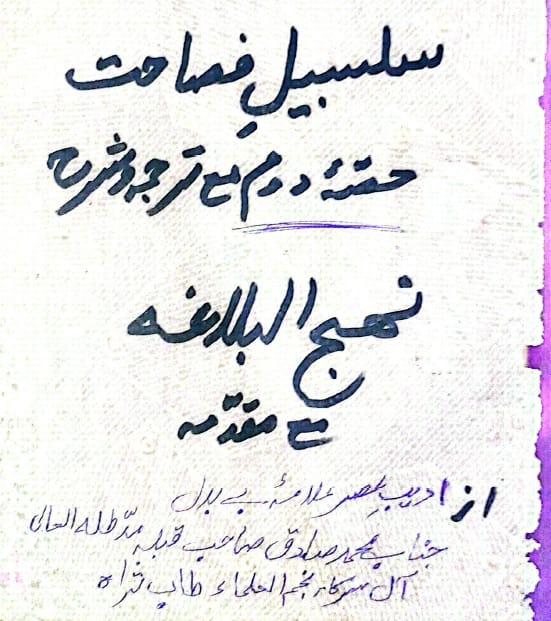 سلسبیلِ فصاحت
حصۂ دوم مع ترجمہ و شرح
نہج البلاغہ
مع مقدّمہ
از ادیبِ عصر علامۂ بے بدل
جناب محمد صادق صاحب قبلہ مدّ ظلہ العالی
آل سرکار نجم العلماء طاب ثراہ